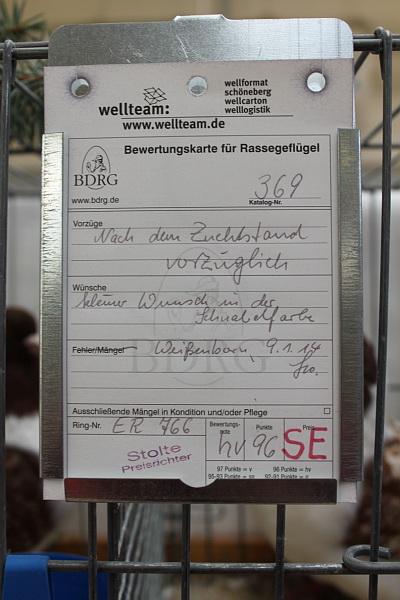 wellteam:
wellformat
schöneberg
wellcarton
welllogistik
www.wellteam.de
BDRG
www.bdrg.de
Bewertungskarte für Rassegeflügel
369
Katalog-Nr.
Vorzüge
Nach dem Zuchtstand
vorzüglich
Wünsche
kleiner Wunsch in der
Schnabelfarbe
Fehler/Mängel Weißenborn, 9.1.14
BDRG
Ausschließende Mängel in Kondition und/oder Pflege
Ring-Nr. ER 766
Bewertungs-
note
hv
Punkte
96
Preis
SE
Stolte
Preisrichter
97 Punkte = v 96 Punkte = hv